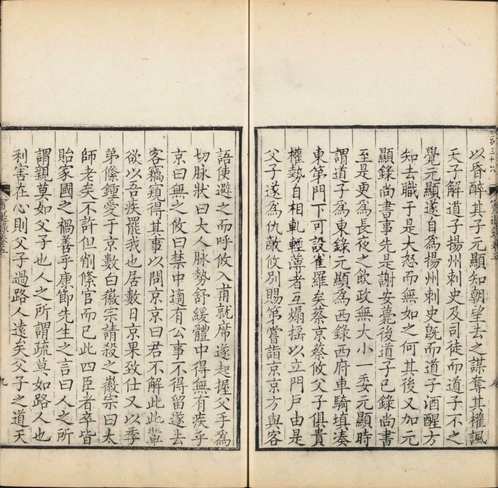 以昏醉其子元顯知朝望去之謀奪其權諷
天子解道子揚州刺史及司徒而道子不之
覺元顯遂自為揚州刺史旣而道子酒醒方
知去職于是大怒而無如之何其後又加元
顯錄尚書事先是謝安薨後道子已錄尚書
至是更為長夜之飲政無大小一委元顯時
謂道子為東錄元顯為西錄西府車騎填湊
東第門下可設雀羅矣蔡京蔡攸父子俱貴
權勢自相軋輕薄者互煽搖以立門戶由是
父子遂為仇敵攸別賜第嘗詣京京方與客
語使避之而呼攸入甫就席遂起握父手為
切脉狀曰大人脉勢舒緩體中得無有疾乎
京曰無之攸曰禁中適有公事不得留遂去
客竊窺得其事以問京京曰君不解此此輩
欲以吾疾罷我也居數日京果致仕又以季
弟絛鍾愛于京數白徽宗請殺之徽宗曰太
師老矣不許但削絛官而已此四臣者卒皆
貽家國之禍善乎康節先生之言曰人之所
謂親莫如父子也人之所謂疏莫如路人也
利害在心則父子過路人遠矣父子之道天
九